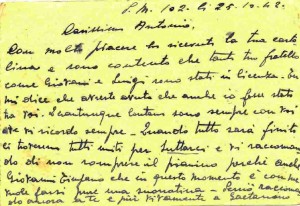 P.M. 102. Li 25.10.42.
Carissimo Antonio.
Con molto piacere ho ricevuto la tua carto
lina e sono contento che tanto tu fratello
come Giovanni e Luigi sono stati in licenza.
mi dice che avreste avuto che anche io fossi stato
tra voi. Quantunque lontano sono sempre con voi
e vi ricordo sempre. Quando tutto sarà finito
ci troveremo tutti uniti per
do di non rompere il pianino perchè anche
Giovanni che in questo momento è con me
vuole farsi pure una suonatina.
do ancora a te e più vivamente a Gaetanino